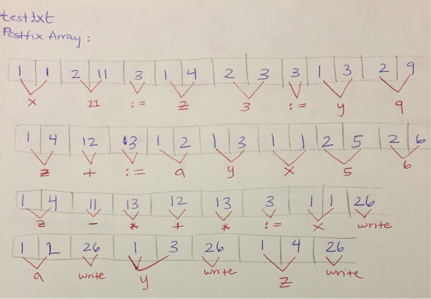 test.txt
Postfix Array :
1 1 2 11 3 1 4 2 3 3 1 3 2 9
x 11 := z 3 := y 9
1 4 12 3 1 2 1 3 1 1 2 5 2 6
z + := a y x 5 6
1 4 11 13 12 13 3 1 1 26
z - * + * := x write
1 2 26 1 3 26 1 4 26
a write y write z write